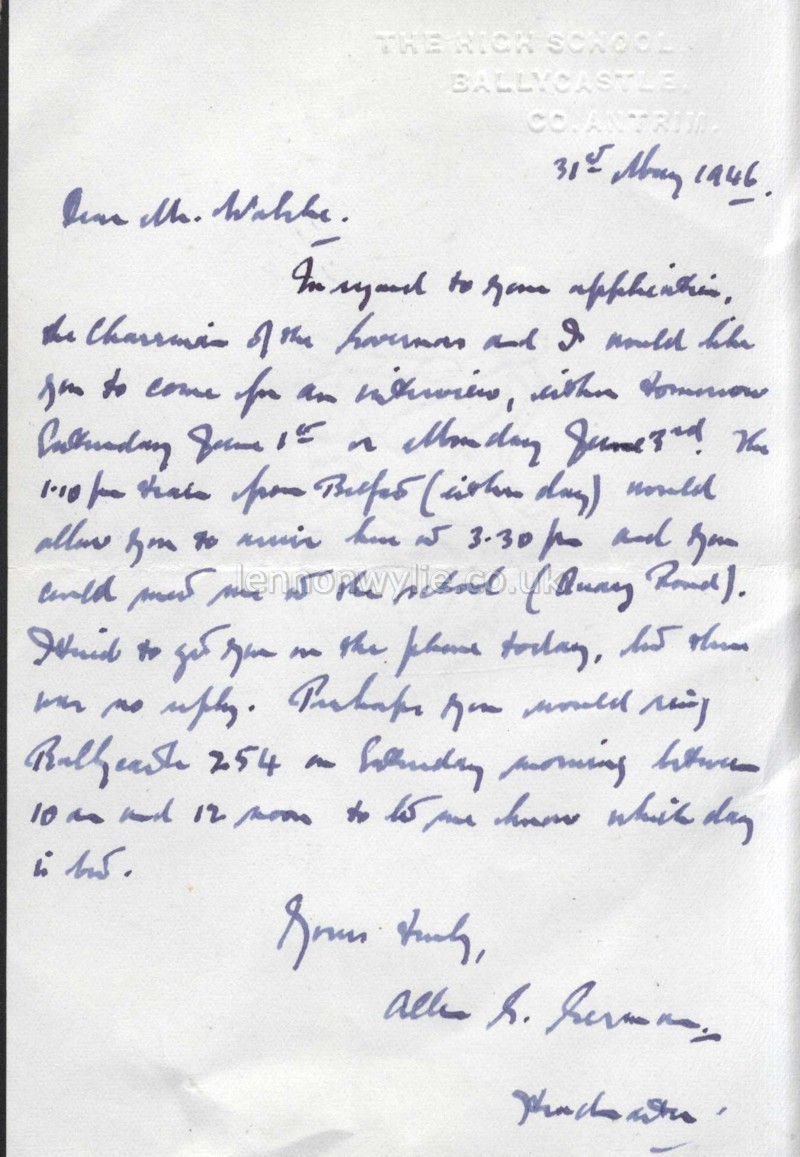 THE HIGH SCHOOL
BALLYCASTLE.
CO. ANTRIM.
31st May 1946.
Dear Mr.
In regard to your application,
the Chairman of the Governors and I would like
you to come for an interview, either tomorrow
Saturday June 1st or Monday June 3rd. The
1.10 pm train from Belfast (either day) would
allow you to arrive here at 3.30 pm and you
could meet me at the school (Quay Road).
I tried to get you on the phone today, but there
was no reply. Perhaps you would ring
Ballycastle 254 on Saturday morning between
10 am and 12 noon to let me know which day
is best.
Yours truly,
Allen
Headmaster
lennonwylie.co.uk